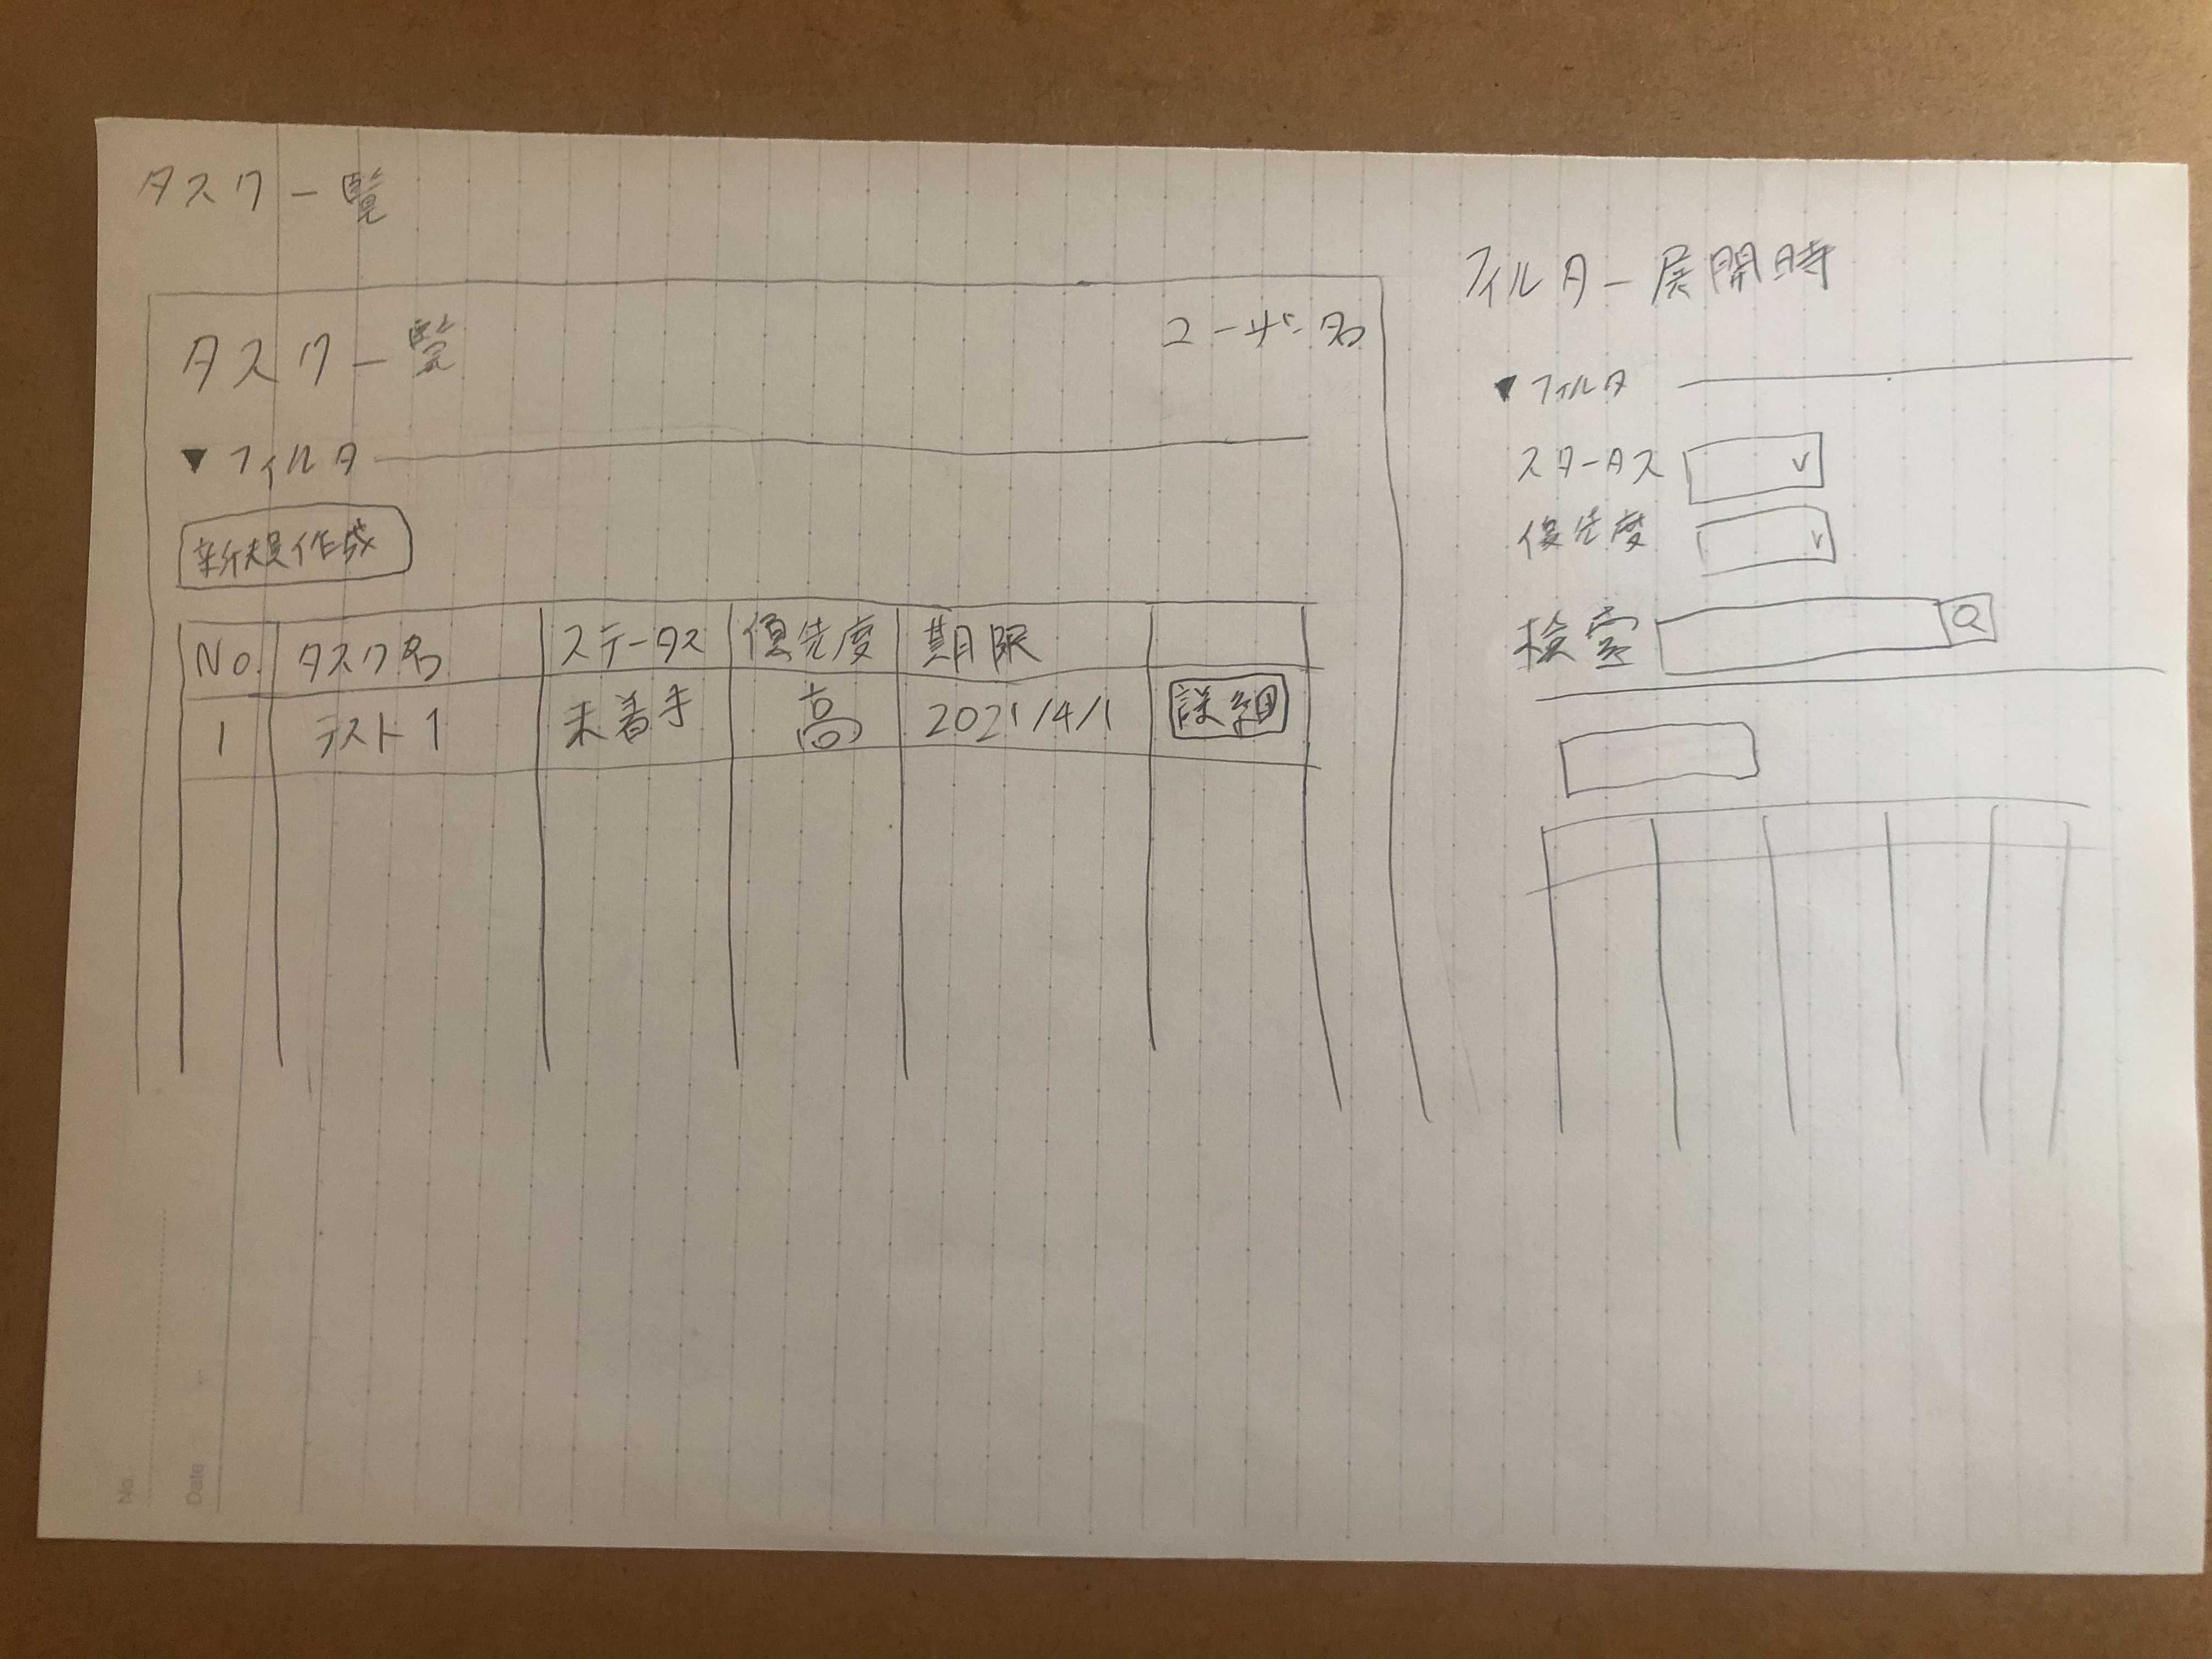 タスク一覧
タスク一覧
ユーザー名
▼フィルタ
新規作成
No. タスク名 ステータス 優先度 期限
1 テスト1 未着手 高 2021/4/1 詳細
フィルター展開時
▼フィルタ
スタータス
優先度
検索
No.
Date